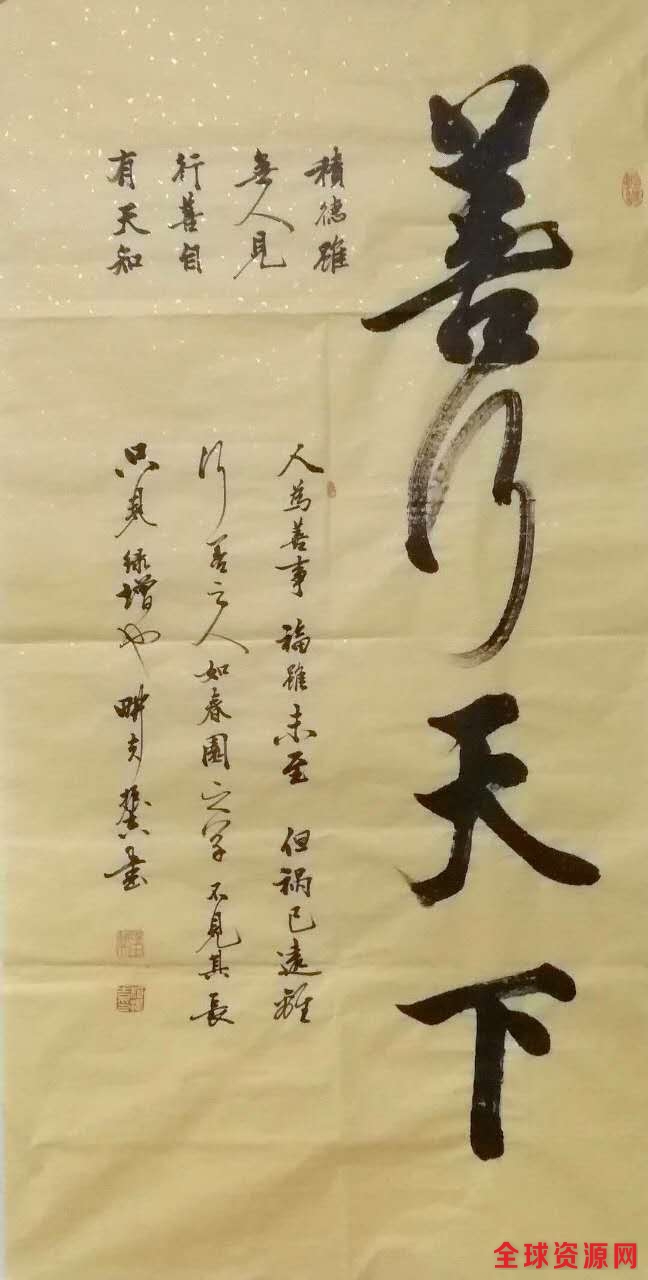 善行天下
積德雖
無人見
行善自
有天知
人為善事 福雖未至 但禍已遠離
行善之人如春園之草 不見其長
只見绿增也 書
全球资源网